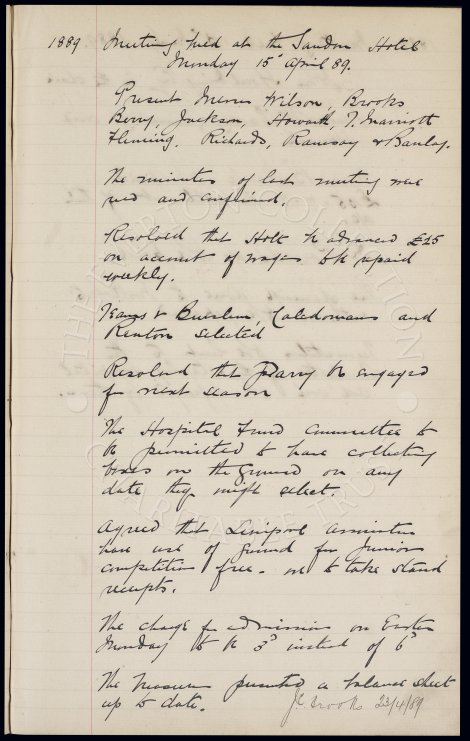 1889 Meeting held at the Sandon Hotel
Monday 15 April 89.
Present Messrs Wilson, Brooks
Berry, Jackson, Howarth, T. Marriott
Fleming, Richards, Ramsay & Barclay.
The minutes of last meeting were
read and confirmed.
Resolved that Holt be advanced £25
on account of wages to be repaid
weekly.
Teams v Burslem, Caledonians and
Renton selected
Resolved that Parry be engaged
for next season
The Hospital Fund Committee to
be permitted to have collecting
boxes on the ground on any
date they might select.
Agreed that Liverpool
have use of ground for Junior
competition free - we to take stand
receipts.
The charge for admission on Easter
Monday to be 3d instead of 6d
The Treasurer presented a balance sheet
up to date.
J C Brooks 23/4/89
THE EVERTON COLLECTION
CHARITABLE TRUST